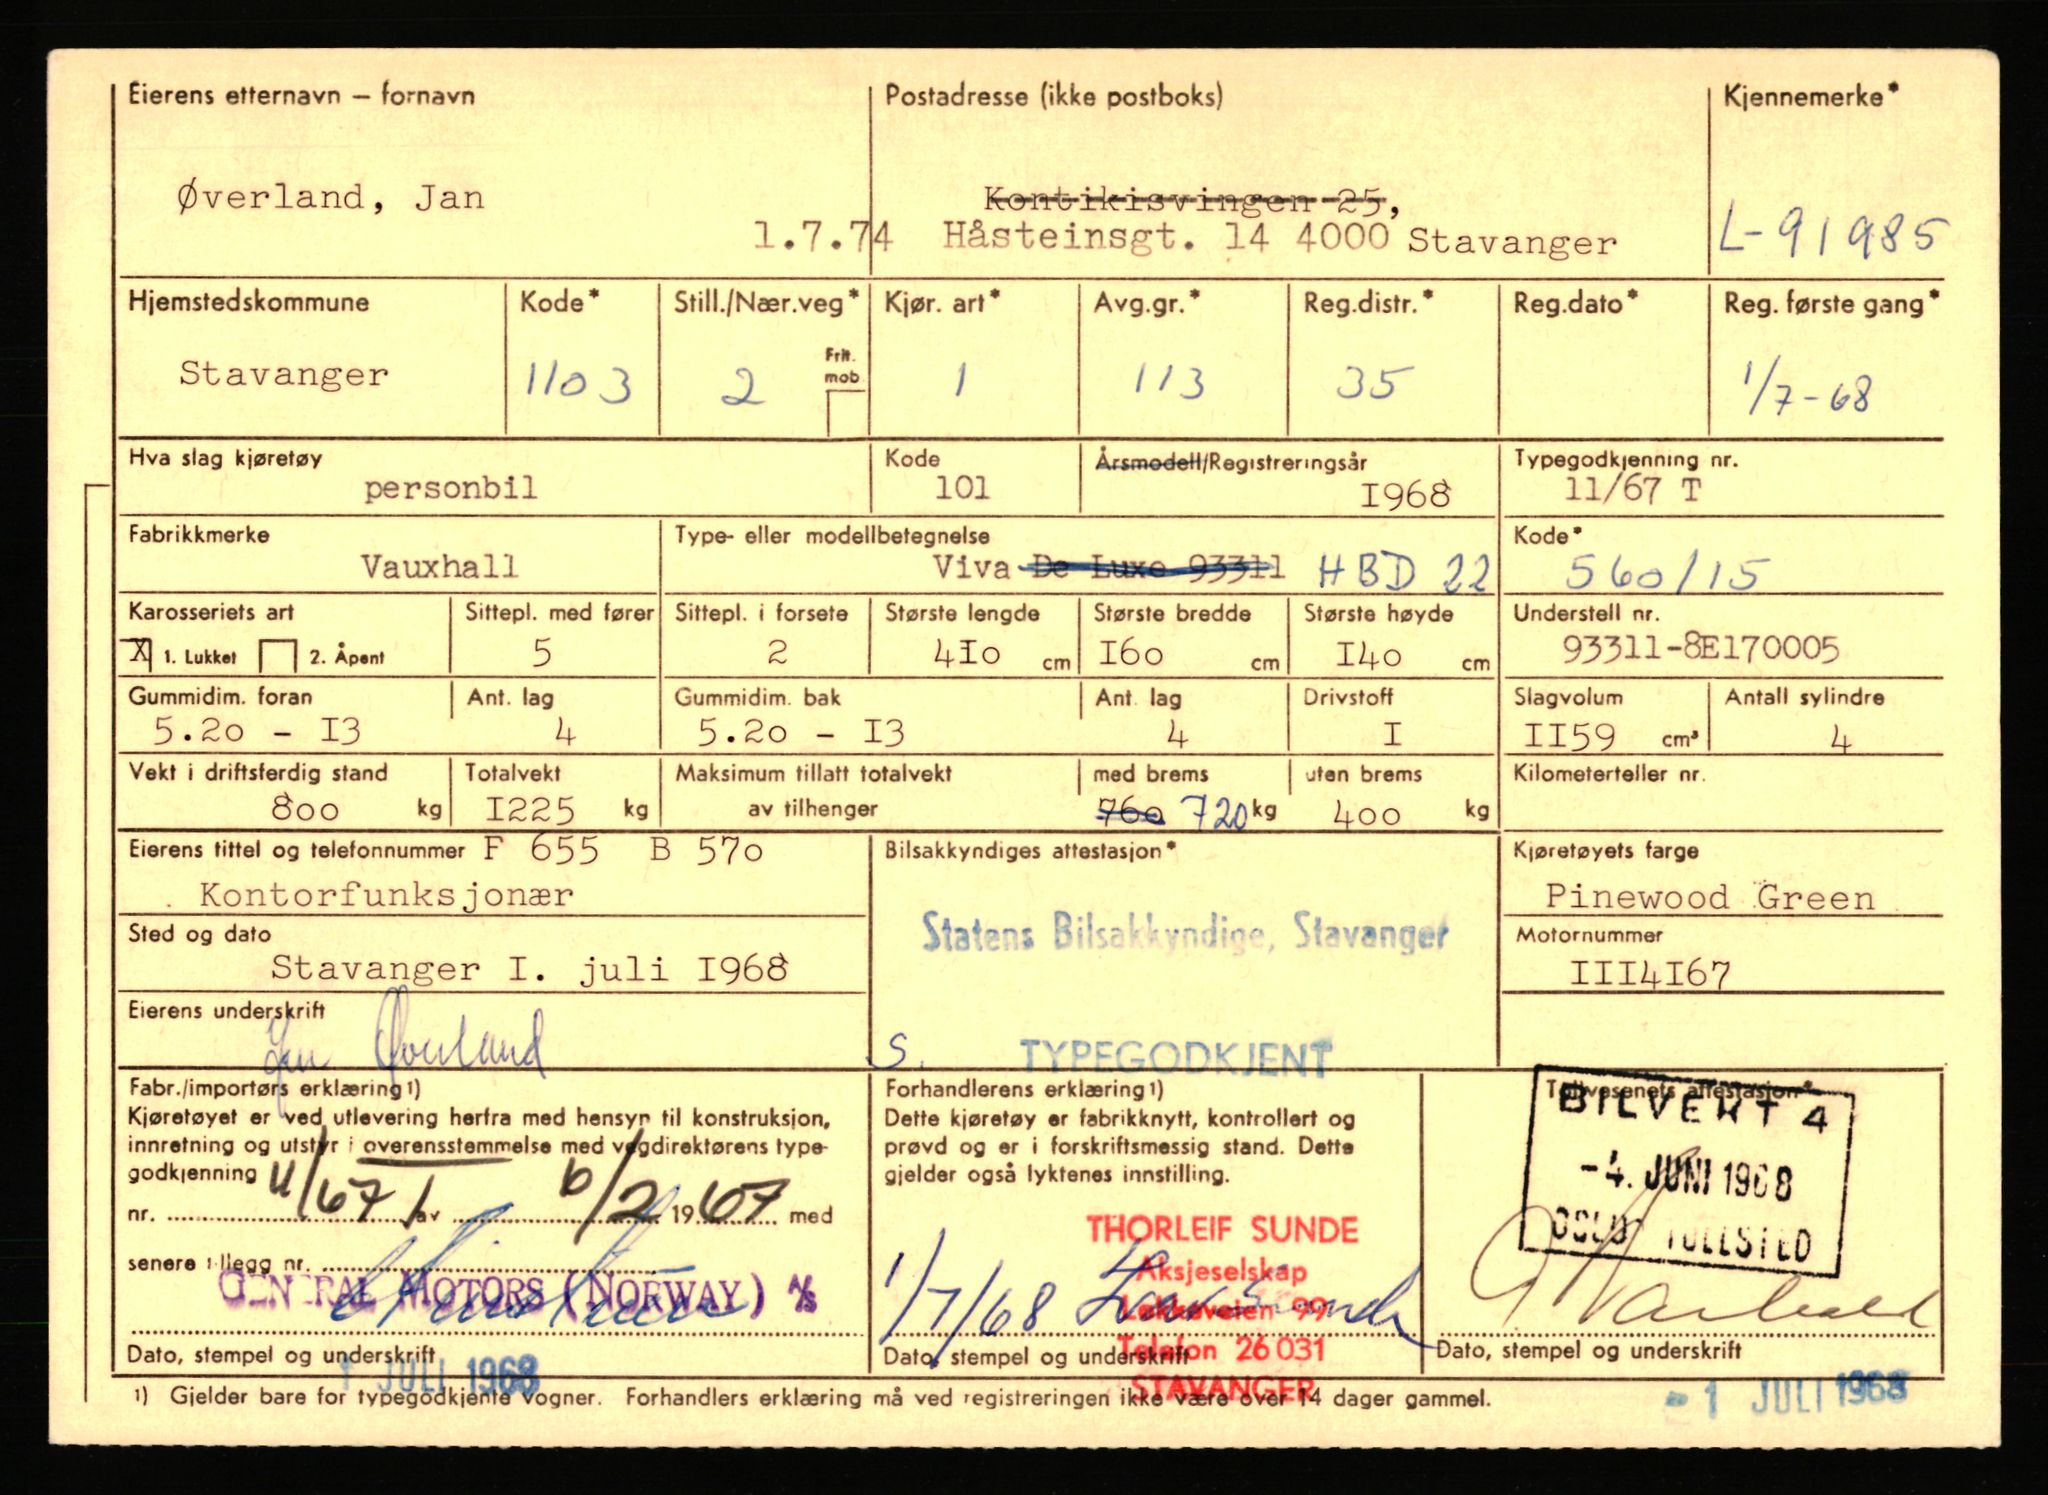 Eierens etternavn – fornavn
Postadresse (ikke postboks)
Kjennemerke*
Øverland, Jan
Kontikisvingen 25,
1.7.74 Håsteinsgt. 14 4000 Stavanger
L-91985
Hjemstedskommune
Kode*
Still./Nær.veg*
Kjør. art*
Avg.gr.*
Reg.distr.*
Reg.dato*
Reg. første gang*
Stavanger
1103
2
Frit. mob.
1
113
35
1/7-68
Hva slag kjøretøy
Kode
Årsmodell/Registreringsår
Typegodkjenning nr.
personbil
101
I968
11/67 T
Fabrikkmerke
Type- eller modellbetegnelse
Kode*
Vauxhall
Viva De Luxe 93311 HBD 22
560/15
Karosseriets art
Sittepl. med fører
Sittepl. i forsete
Største lengde
Største bredde
Største høyde
Understell nr.
X 1. Lukket 2. Åpent
5
2
4I0 cm
I60 cm
I40 cm
93311-8E170005
Gummidim. foran
Ant. lag
Gummidim. bak
Ant. lag
Drivstoff
Slagvolum
Antall sylindre
5.20 - I3
4
5.20 - I3
4
I
II59 cm³
4
Vekt i driftsferdig stand
Totalvekt
Maksimum tillatt totalvekt
av tilhenger
med brems
uten brems
Kilometerteller nr.
800 kg
I225 kg
760 720 kg
400 kg
Eierens tittel og telefonnummer F 655 B 570
Bilsakkyndiges attestasjon*
Kjøretøyets farge
Kontorfunksjonær
Pinewood Green
Sted og dato
Statens Bilsakkyndige, Stavanger
Motornummer
Stavanger I. juli I968
III4I67
Eierens underskrift
Jan Øverland
S. TYPEGODKJENT
Fabr./importørs erklæring 1)
Kjøretøyet er ved utlevering herfra med hensyn til konstruksjon,
innretning og utstyr i overensstemmelse med vegdirektørens type-
godkjenning
nr. 11/67 T av 6/2 1967 med
senere tillegg nr.
GENERAL MOTORS (NORWAY) A/S
Dato, stempel og underskrift
1 JULI 1968
Forhandlerens erklæring 1)
Dette kjøretøy er fabrikknytt, kontrollert og
prøvd og er i forskriftsmessig stand. Dette
gjelder også lyktenes innstilling.
THORLEIF SUNDE
Aksjeselskap
Løkkeveien 99
Telefon 26 031
STAVANGER
1/7/68
Dato, stempel og underskrift
Tollvesenets attestasjon*
BILVEKT 4
-4. JUNI 1968
OSLO TOLLSTED
Dato, stempel og underskrift
- 1 JULI 1968
1) Gjelder bare for typegodkjente vogner. Forhandlers erklæring må ved registreringen ikke være over 14 dager gammel.